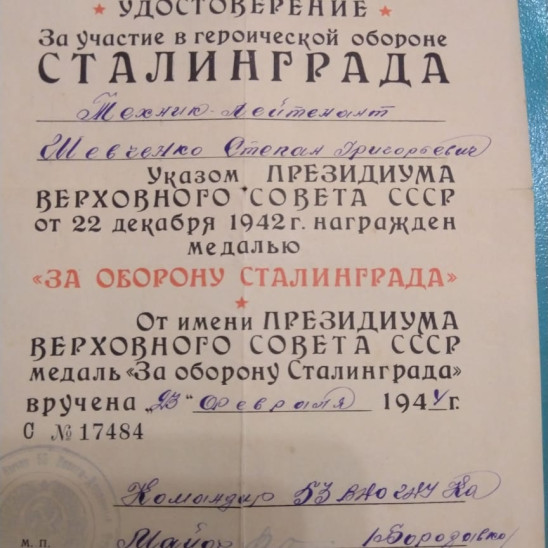 ★ УДОСТОВЕРЕНИЕ ★
За участие в героической обороне
СТАЛИНГРАДА
Техник-лейтенант
Шевченко Степан Григорьевич
Указом ПРЕЗИДИУМА
ВЕРХОВНОГО СОВЕТА СССР
от 22 декабря 1942 г. награжден
медалью
«ЗА ОБОРОНУ СТАЛИНГРАДА»
★
От имени ПРЕЗИДИУМА
ВЕРХОВНОГО СОВЕТА СССР
медаль «За оборону Сталинграда»
вручена „23" февраля 1944 г.
С № 17484
Командир 53
М. П. Майор /Бородавко/